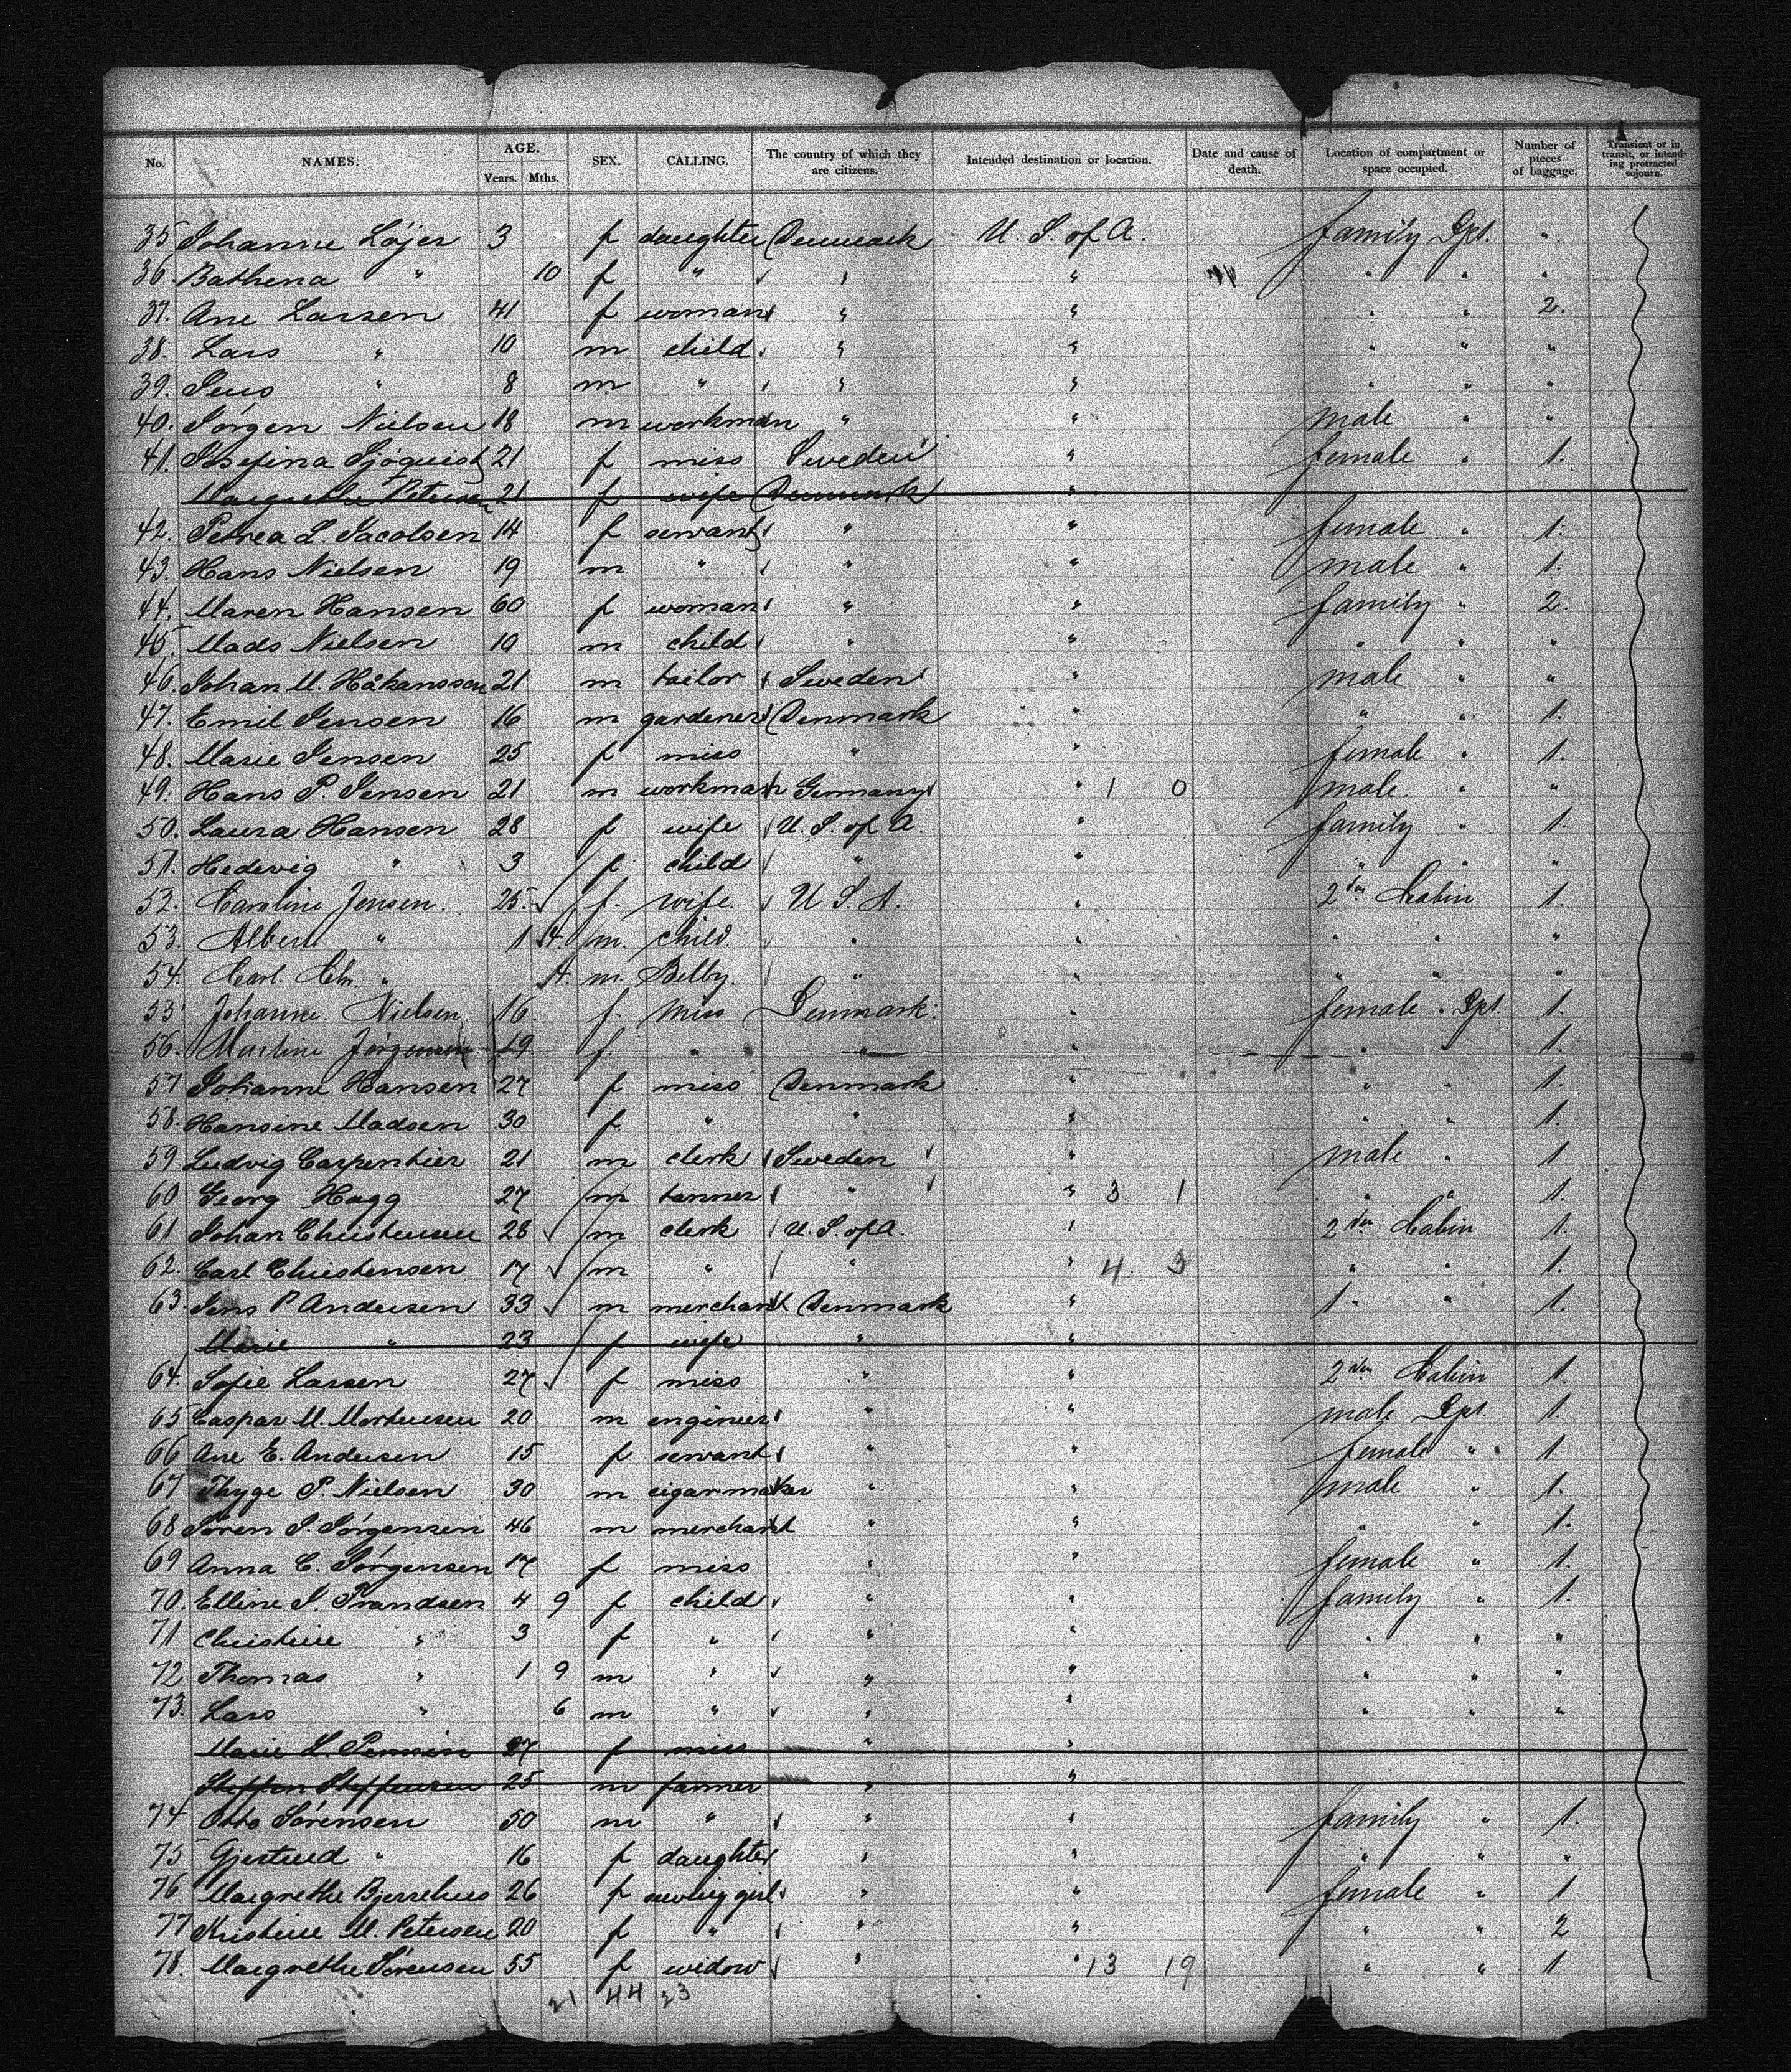 No. NAMES. AGE. Years. Mths. SEX. CALLING. The country of which they are citizens. Intended destination or location. Date and cause of death. Location of compartment or space occupied. Number of pieces of baggage. Transient or in transit, or intending protracted sojourn.
35 Johanne Løjer 3 f daughter Denmark U. S. of A. family Dpt. "
36. Bathena " 10 f " " " " " "
37. Ane Larsen 41 f woman " " " " 2.
38. Lars " 10 m child " " " " "
39. Jens " 8 m " " " " " "
40. Jørgen Nielsen 18 m workman " " male " "
41. Josefina Sjöquist 21 f miss Sweden " female " 1.
Margrethe Petersen 21 f wife Denmark "
42. Petrea L. Jacobsen 14 f servant " " female " 1.
43. Hans Nielsen 19 m " " " male " 1.
44. Maren Hansen 60 f woman " " family " 2.
45. Mads Nielsen 10 m child " " " " "
46. Johan M. Håkansson 21 m tailor Sweden " male " "
47. Emil Jensen 16 m gardener Denmark " " " 1.
48. Marie Jensen 25 f miss " " female " 1.
49. Hans P. Jensen 21 m workman Germany " 1 0 male. " "
50. Laura Hansen 28 f wife U. S. of A. " family " 1.
51. Hedevig " 3 f child " " " " "
52. Caroline Jensen. 25. f. wife. U S. A. " 2den Cabin 1.
53. Albert " 1 4. m. child. " " " " "
54. Carl. Chr. " 4. m. " " " " "
55 Johanne. Nielsen 16. f. Miss Denmark. " female " Dpt. 1.
56. Martine Jørgensen 19 f. " " " " " 1.
57 Johanne Hansen 27 f miss Denmark " " " 1.
58. Hansine Madsen 30 f " " " " " 1.
59 Ludvig Carpentier 21 m clerk Sweden " male " 1
60 Georg Hagg 27 m tanner " " 3 1 " " 1.
61 Johan Christensen 28 m clerk U. S. of A. " 2den Cabin 1.
62. Carl Christensen 17 m " " " 4. 3 " " 1.
63. Jens P Andersen 33 m merchant Denmark " 1 " " 1.
Marie " 23 f wife " "
64. Sofie Larsen 27 f miss " " 2den Cabin 1.
65 Caspar M. Mortensen 20 m engineer " " male Dpt. 1.
66 Ane E. Andersen 15 f servant " " female " 1
67 Thyge P. Nielsen 30 m cigarmaker " " male " 1.
68 Søren P. Jørgensen 46 m merchant " " " " 1.
69 Anna C. Jørgensen 17 f miss " " female " 1.
70. Elline J. Trandsen 4 9 f child " " family " 1.
71 Christine " 3 f " " " " " "
72 Thomas " 1 9 m " " " " " "
73. Lars " 6 m " " " " " "
Marie 27 f miss " "
Steffen Steffensen 25 m farmer " "
74 Otto Sørensen 50 m " " " family " 1.
75 Gjertrud " 16 f daughter " " " " "
76 Margrethe Bjerrehuus 26 f sewing girl " " female " 1
77 Kristine M. Petersen 20 f " " " " " 2
78. Margrethe Sørensen 55 f widow " " 13 19 " " 1
21 44 23